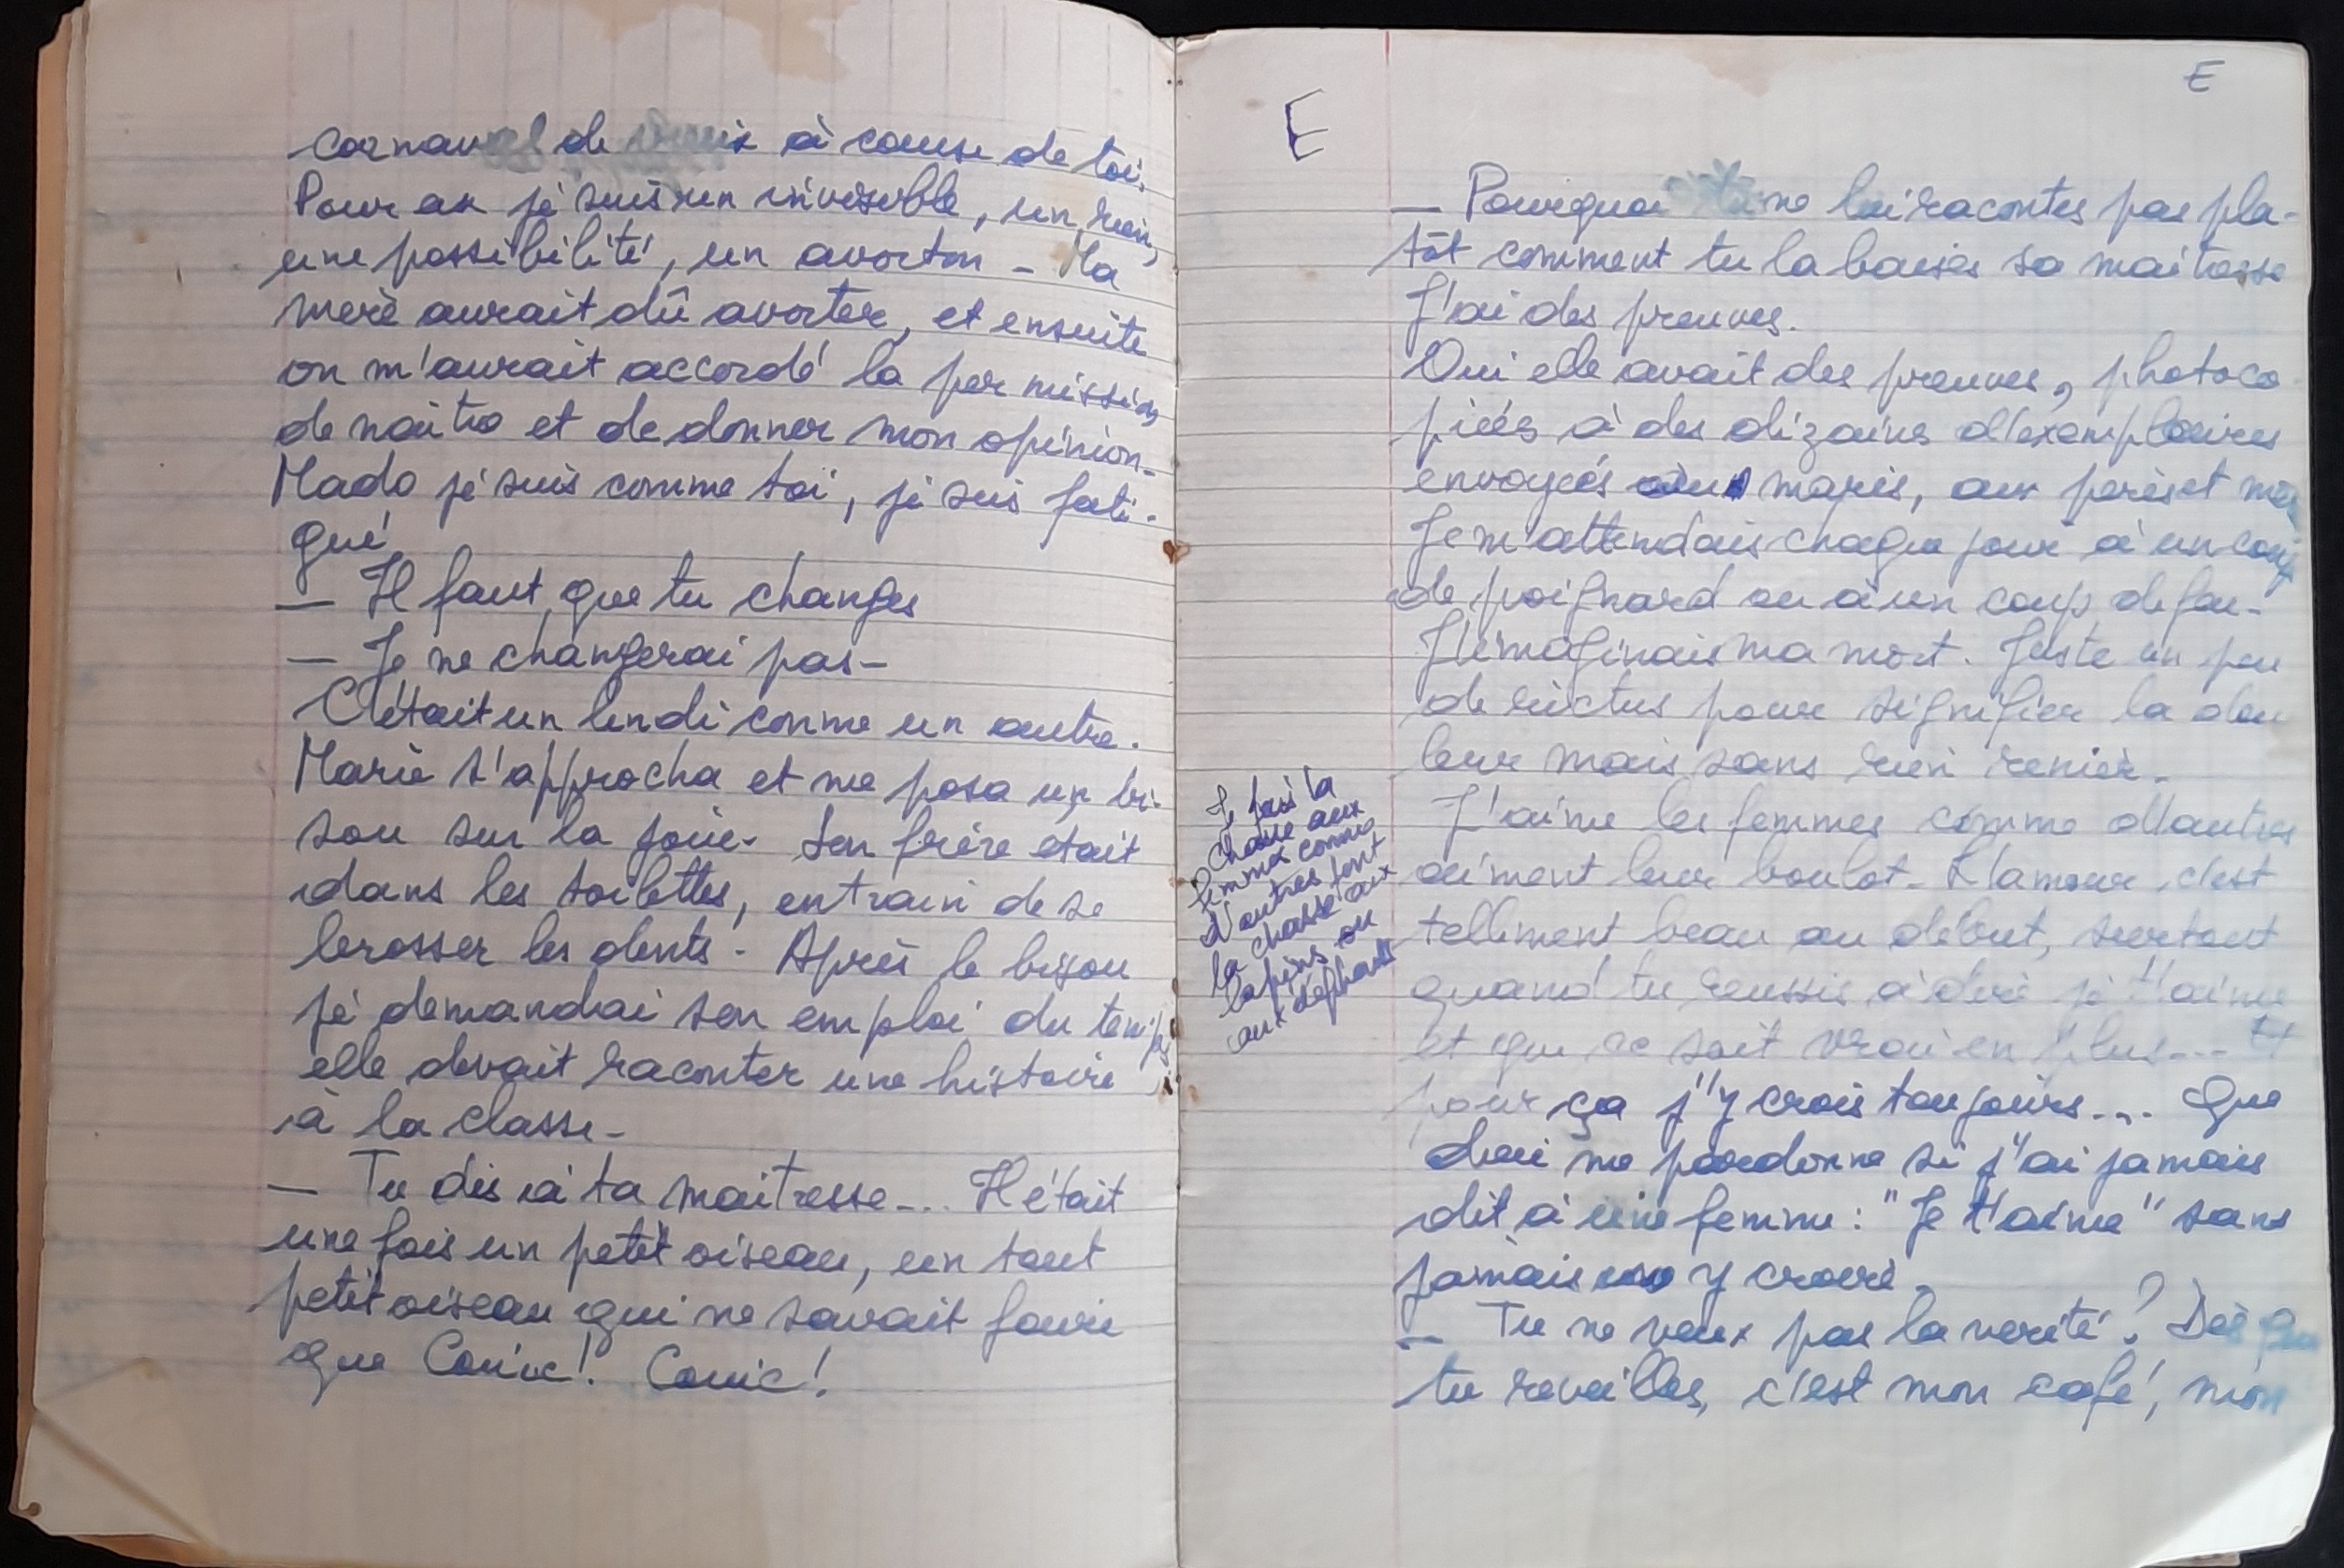 carnaval de à cause de toi.
Pour eux je suis un invisible, un rien,
une possibilité, un avorton - Ma
mère aurait dû avorter, et ensuite
on m'aurait accordé la permission
de naître et de donner mon opinion -
Mado je suis comme toi, je suis fati-
gué
— Il faut que tu changes
— Je ne changerai pas -
C'était un lundi comme un autre.
Marie s'approcha et me posa un bi-
sou sur la joue. Son frère etait
dans les toilettes, entrain de se
brosser les dents - Après le bisou
je demandai son emploi du temps
elle devait raconter une histoire
à la classe -
— Tu dis à ta maitresse... Il était
une fois un petit oiseau, un tout
petit oiseau qui ne savait faire
que Couic! Couic!
E
E
— Pourquoi tu ne lui racontes pas plu-
tôt comment tu la baises sa maitresse
J'ai des preuves.
Oui elle avait des preuves, photoco
piées à des dizaines d'exemplaires
envoyées aux maris, aux pères et
Je m'attendais chaque jour à un coup
de poignard ou à un coup de feu -
J'imaginais ma mort. Juste un peu
de rictus pour signifier la dou
leur mais sans rien renier -
J'aime les femmes comme d'autres
aiment leur boulot - L'amour c'est
tellement beau au début, surtout
quand tu reussis à dire je t'aime
et que ce soit vrai en plus... Et
pour ça j'y crois toujours... Que
dieu me pardonne si j'ai jamais
dit à une femme : "Je t'aime" sans
jamais y croire.
— Tu ne veux pas la verité ? Dès que
tu reveilles, c'est mon café, mon
Je fais la
chasse aux
femmes comme
d'autres font
la chasse aux
lapins ou
aux éléphants